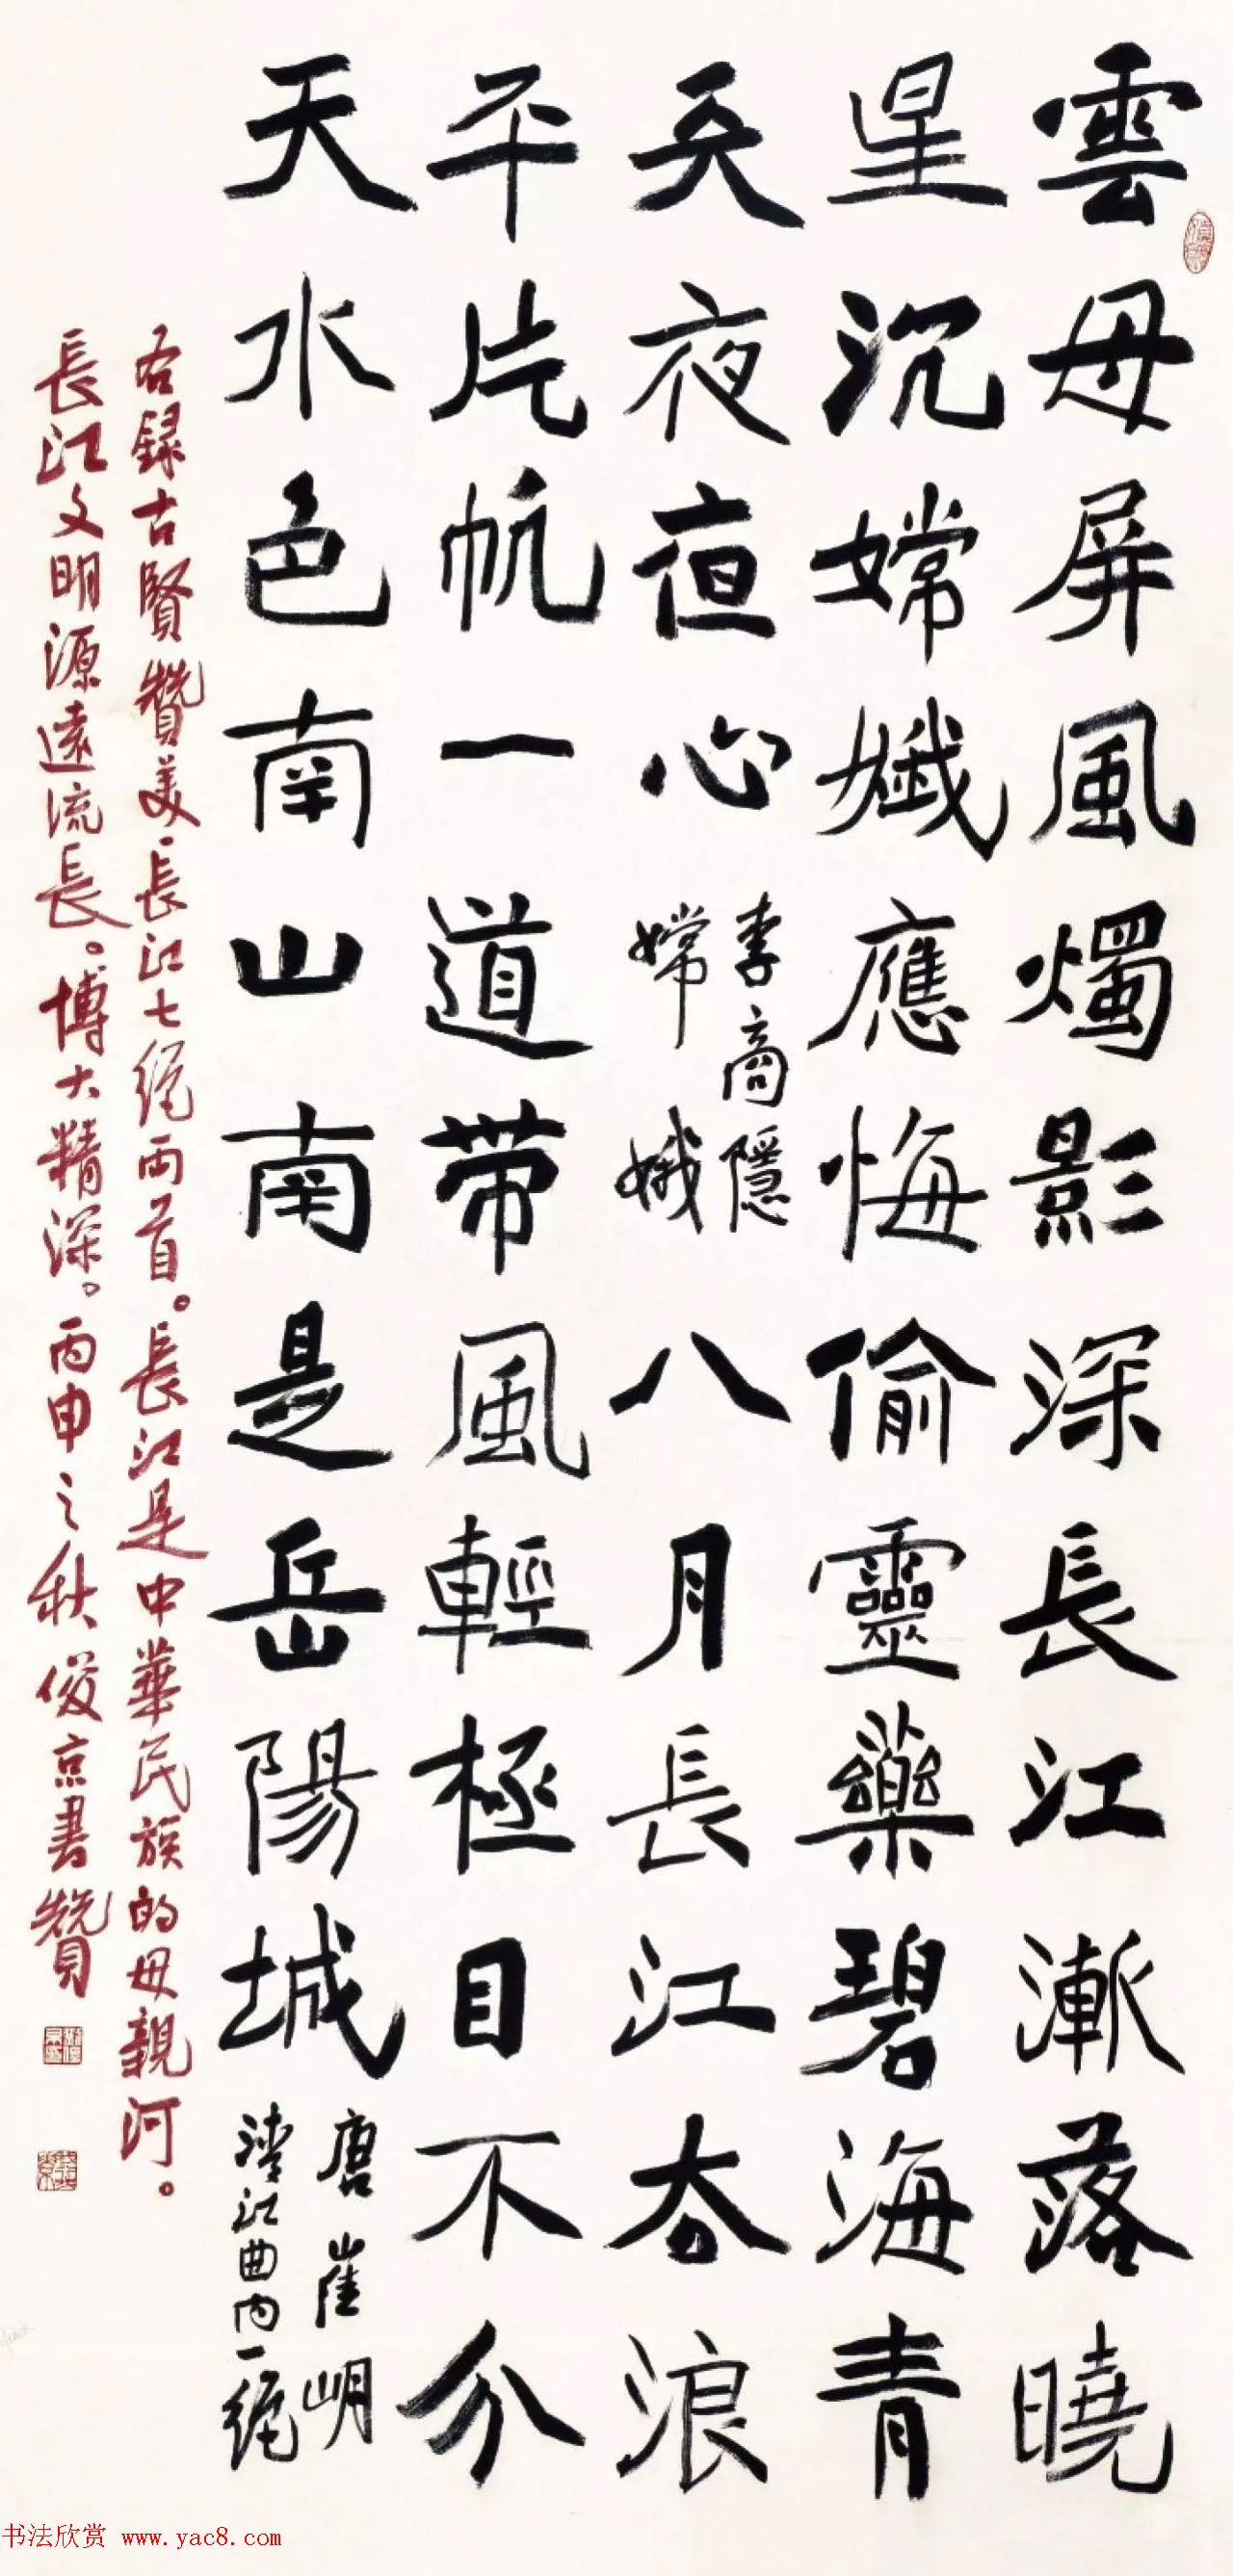 雲母屏風燭影深長江漸落曉
星沉嫦孅應悔偷靈藥碧海青
天夜夜心
李商隱
嫦娥
八月長江去浪
平片帆一道带風輕極目不分
天水色南山南是岳陽城
唐崔峒
清江曲内一絕
右録古賢贊美長江七絕兩首。長江是中華民族的母親河。
長江文明源遠流長。博大精深。丙申之秋俊京書贊
书法欣赏 www.yac8.com